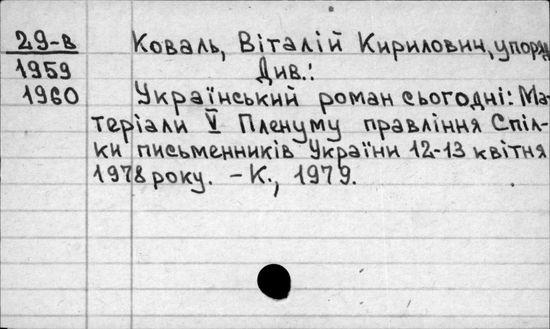 29-в Коваль, Віталій Кирилович, упоряд
1959 Див.:
1960 Український роман сьогодні: Ма-
теріали V Пленуму правління Спіл-
ки письменників України 12-13 квітня
1978 року. - К., 1979.